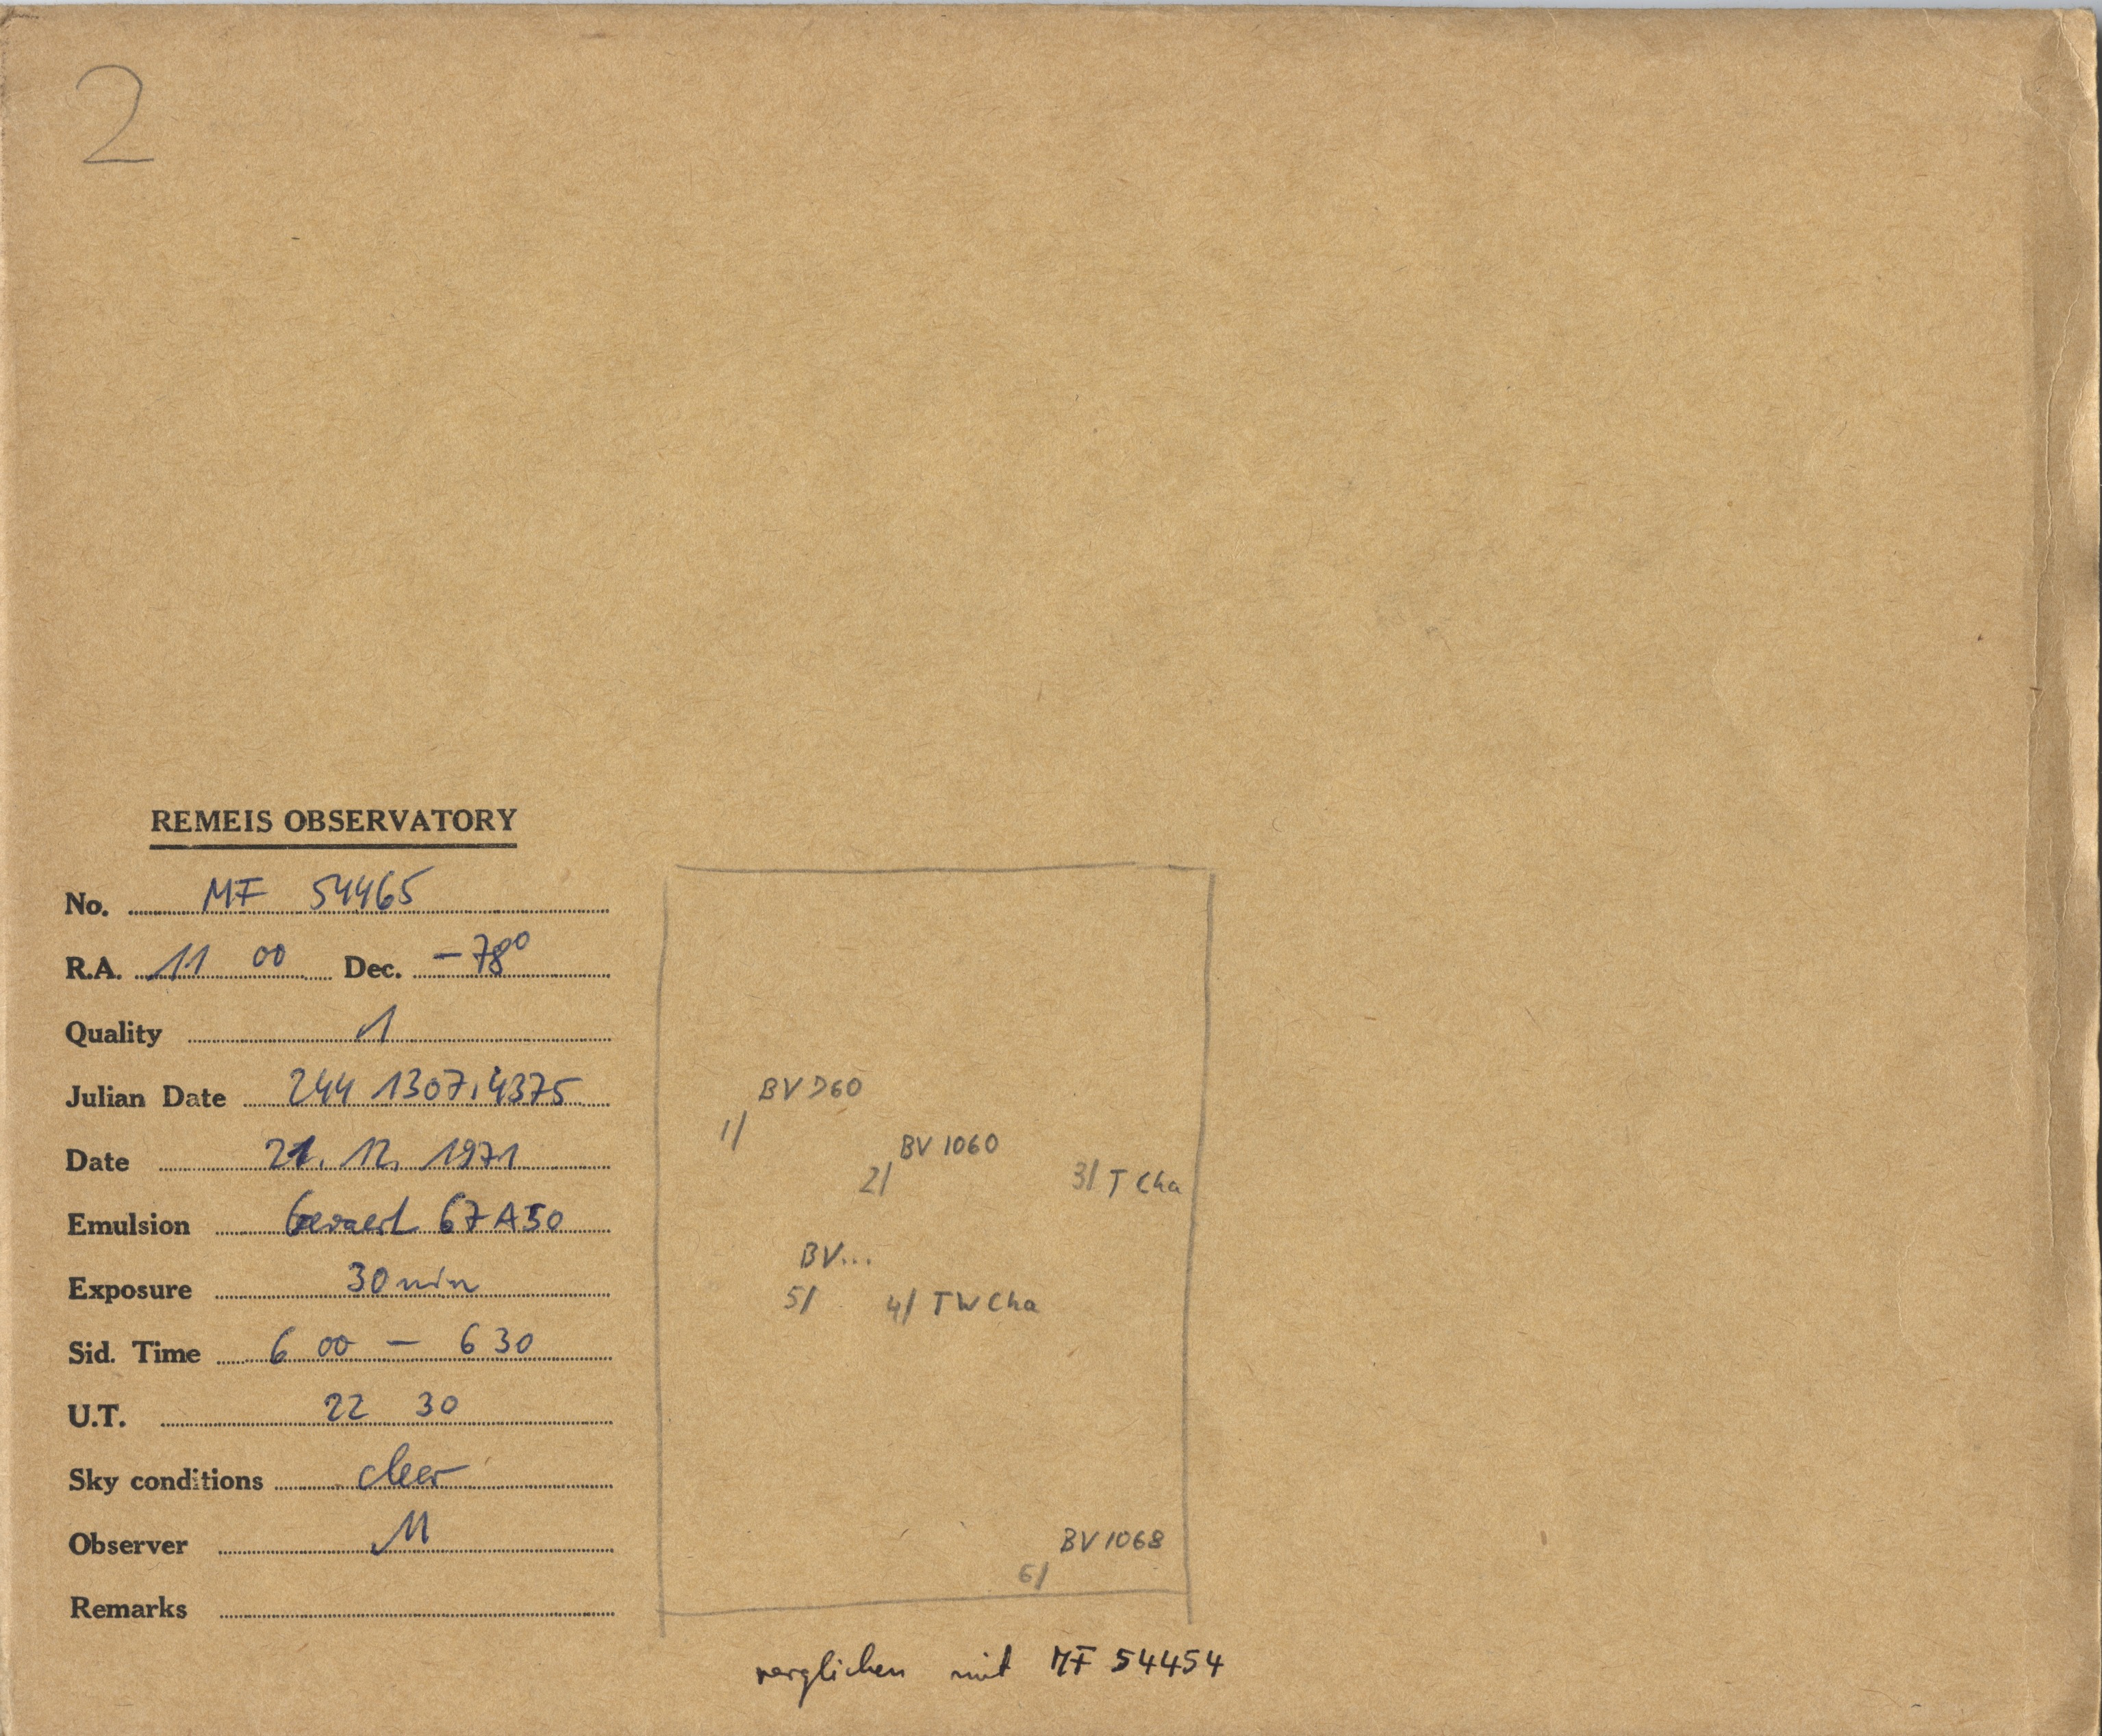 2
REMEIS OBSERVATORY
No. MF 54465
R.A. 11 00 Dec. -78°
Quality 1
Julian Date 244 1307,4375
Date 21. 12. 1971
Emulsion Gevaert 67A50
Exposure 30 min
Sid. Time 6 00 - 6 30
U.T. 22 30
Sky conditions clear
Observer M
Remarks
BV 760
1/
BV 1060
2/
3/ T Cha
BV...
5/ 4/ TW Cha
BV 1068
6/
verglichen mit MF 54454